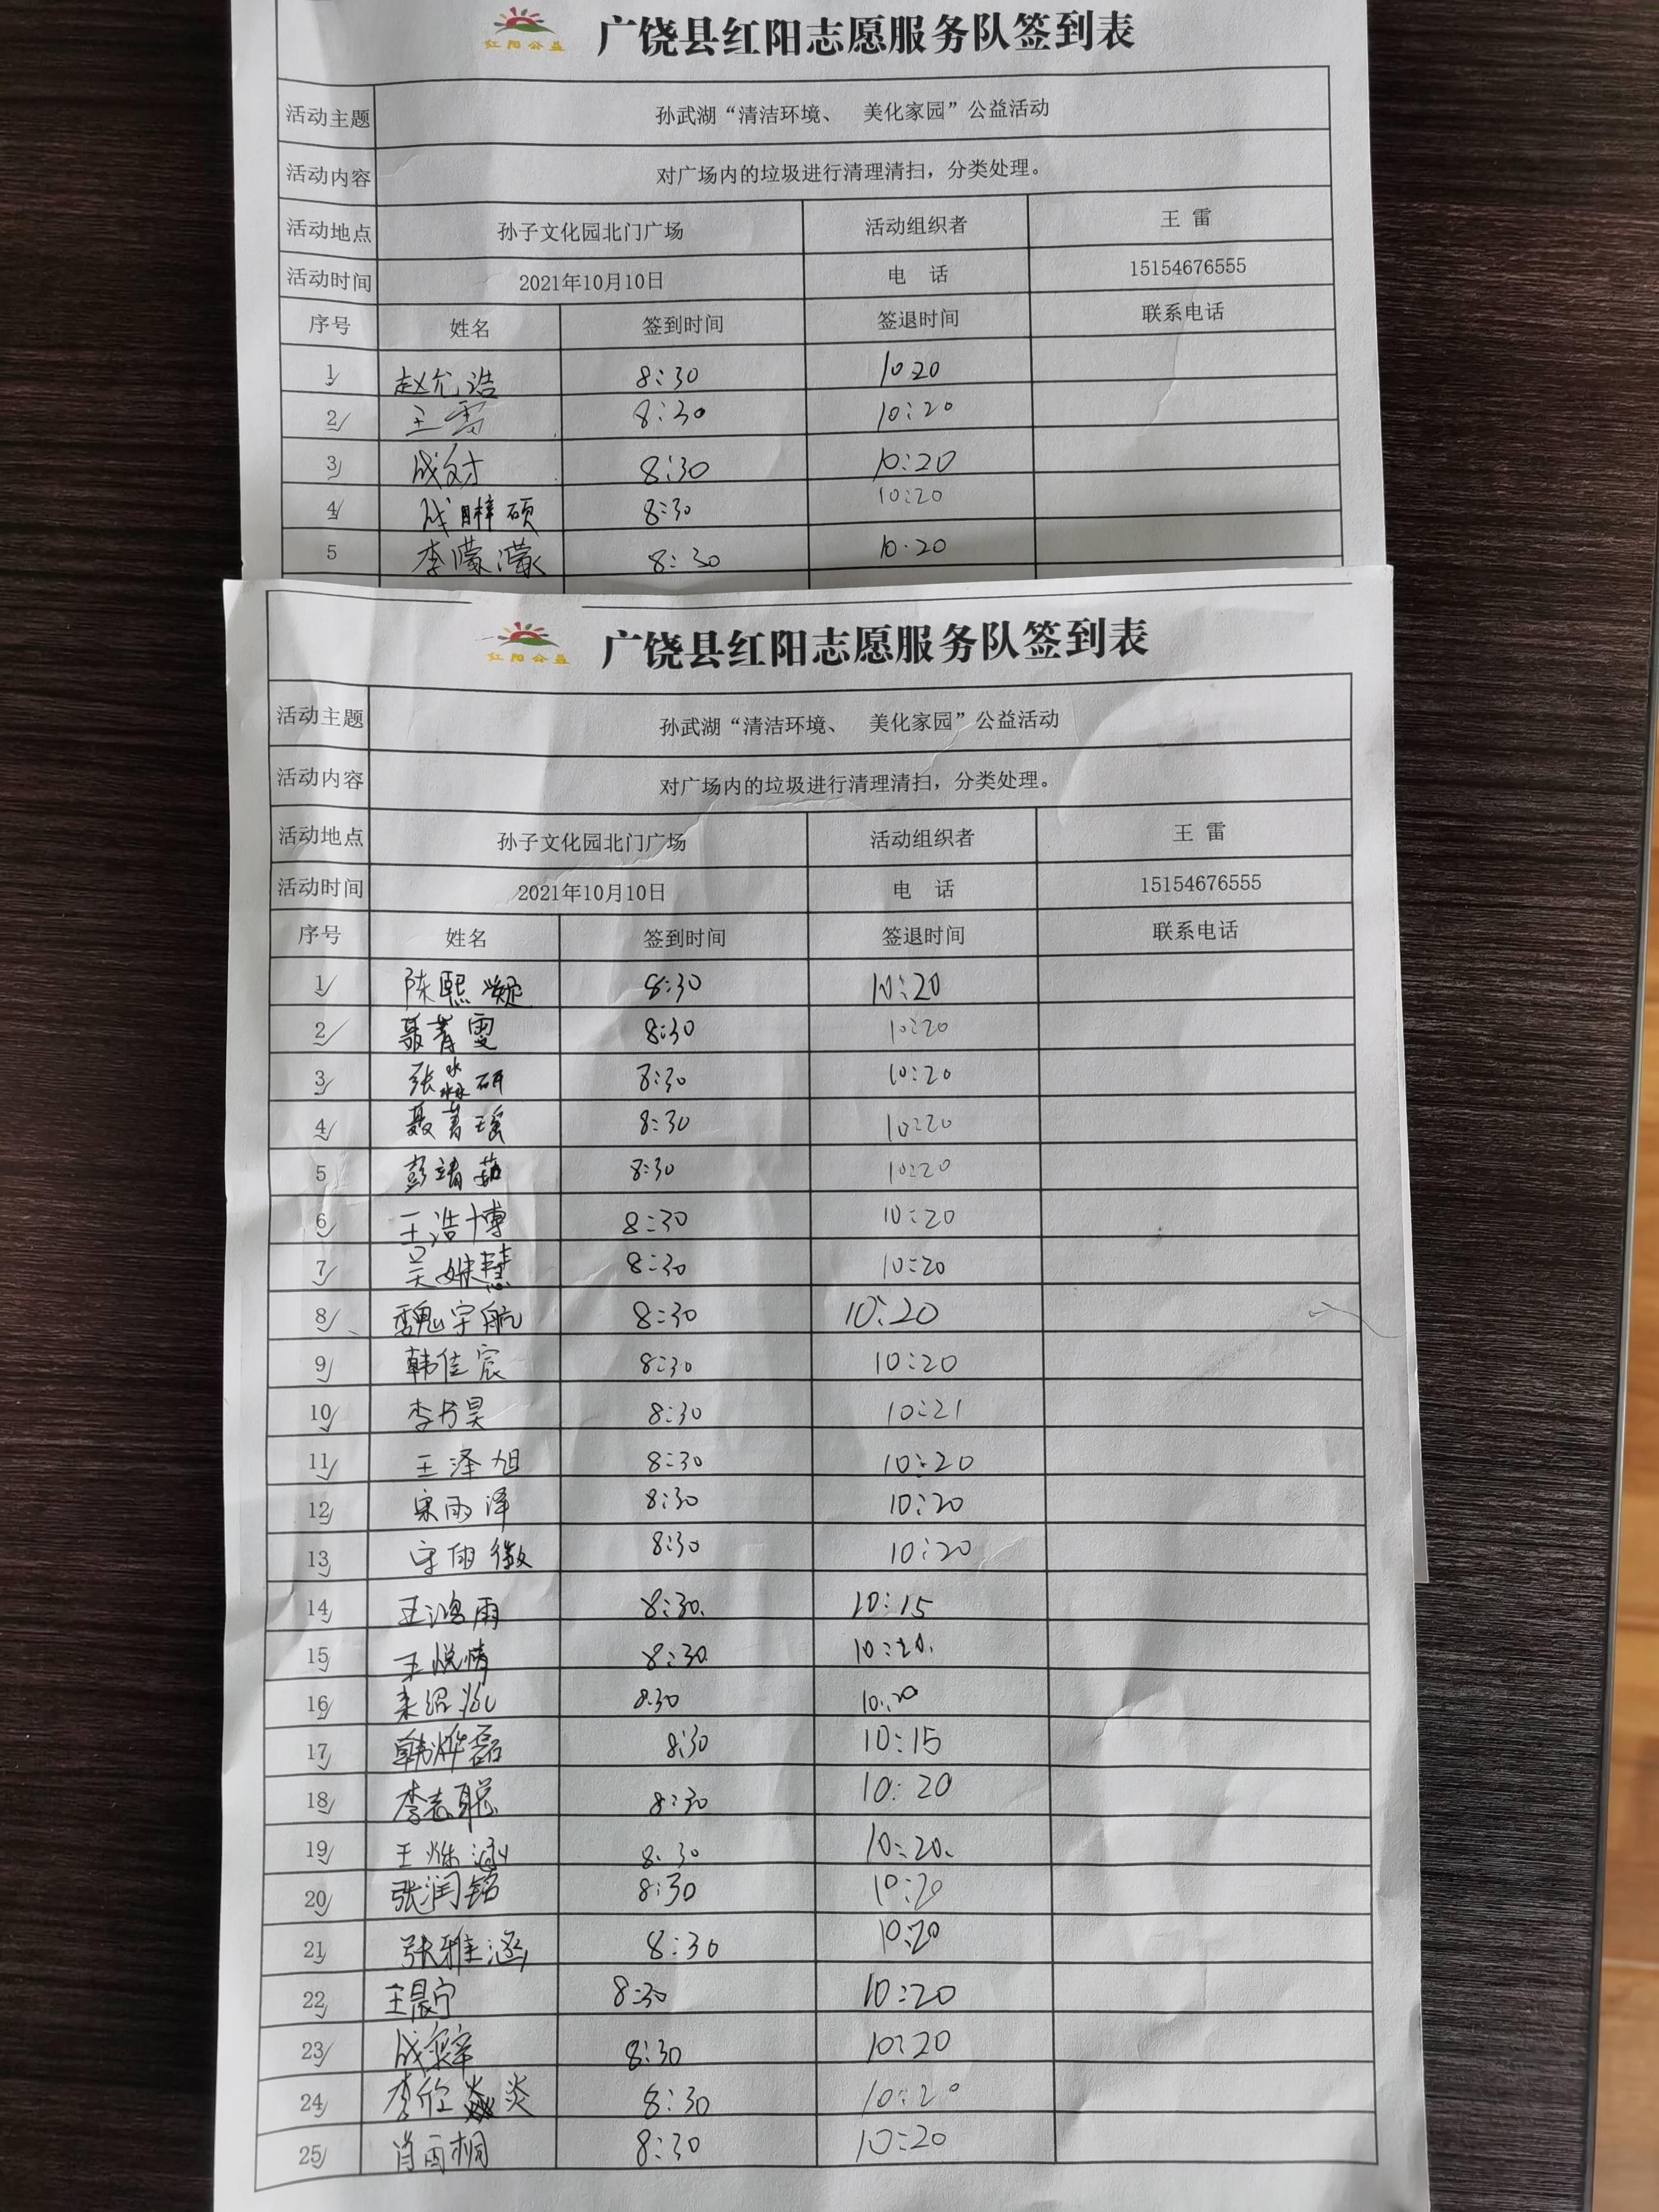 红阳公益 广饶县红阳志愿服务队签到表
活动主题 孙武湖“清洁环境、 美化家园”公益活动
活动内容 对广场内的垃圾进行清理清扫，分类处理。
活动地点 孙子文化园北门广场 活动组织者 王 雷
活动时间 2021年10月10日 电 话 15154676555
序号 姓名 签到时间 签退时间 联系电话
1 赵允浩 8:30 10 20
2 王雷 8:30 10:20
3 8:30 10:20
4 8:30 10:20
5 李濛濛 8:30 10.20
红阳公益 广饶县红阳志愿服务队签到表
活动主题 孙武湖“清洁环境、 美化家园”公益活动
活动内容 对广场内的垃圾进行清理清扫，分类处理。
活动地点 孙子文化园北门广场 活动组织者 王 雷
活动时间 2021年10月10日 电 话 15154676555
序号 姓名 签到时间 签退时间 联系电话
1 陈熙凝 8:30 10:20
2 聂菁雯 8:30 10:20
3 张淼研 8:30 10:20
4 聂菁瑶 8:30 10:20
5 彭靖茹 8:30 10:20
6 王浩博 8:30 10:20
7 8:30 10:20
8 魏宇航 8:30 10:20
9 韩佳宸 8:30 10:20
10 8:30 10:21
11 王泽旭 8:30 10:20
12 宋雨泽 8:30 10:20
13 8:30 10:20
14 王鸿雨 8:30. 10:15
15 王悦情 8:30. 10:20.
16 8.30 10:20
17 韩烨磊 8:30 10:15
18 李志聪 8:30 10:20
19 王烁涵 8.30 10:20.
20 张润铭 8:30 10:20
21 张雅涵 8:30 10:20
22 王晨宁 8:30 10:20
23 8:30 10:20
24 李欣炎 8:30 10:20
25 肖雨桐 8:30 10:20